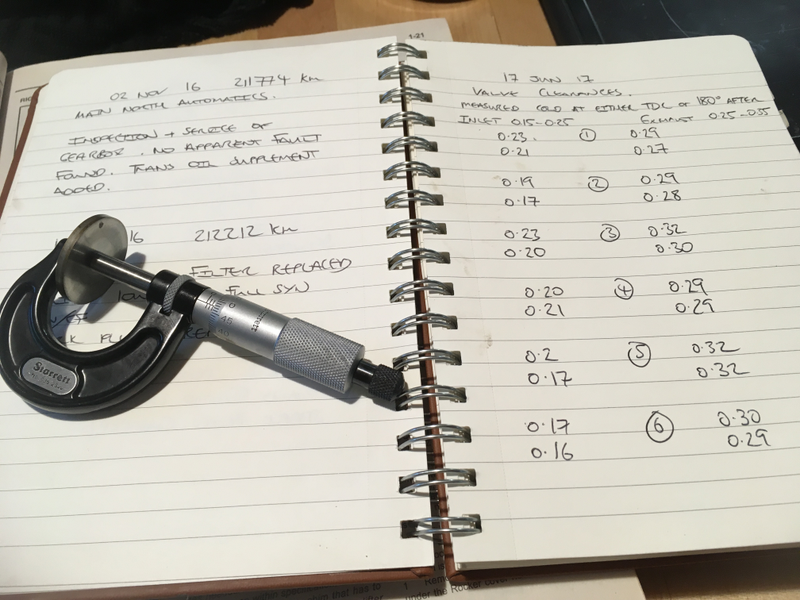 02 NOV 16 211774 km
MAIN NORTH AUTOMATICS.
INSPECTION + SERVICE OF
GEARBOX. NO APPARENT FAULT
FOUND. TRANS OIL SUPPLEMENT
ADDED.
16 212212 km
FILTER REPLACED
FULL SYN
Starrett
1-21
17 JUN 17
VALVE CLEARANCES.
MEASURED COLD AT EITHER TDC or 180° AFTER
INLET 0.15-0.25 EXHAUST 0.25-0.35
0.23. ① 0.29
0.21 0.27
0.19 ② 0.29
0.17 0.28
0.23 ③ 0.32
0.20 0.30
0.20 ④ 0.29
0.21 0.29
0.2 ⑤ 0.32
0.17 0.32
0.17 ⑥ 0.30
0.16 0.29
under the Rocker cover